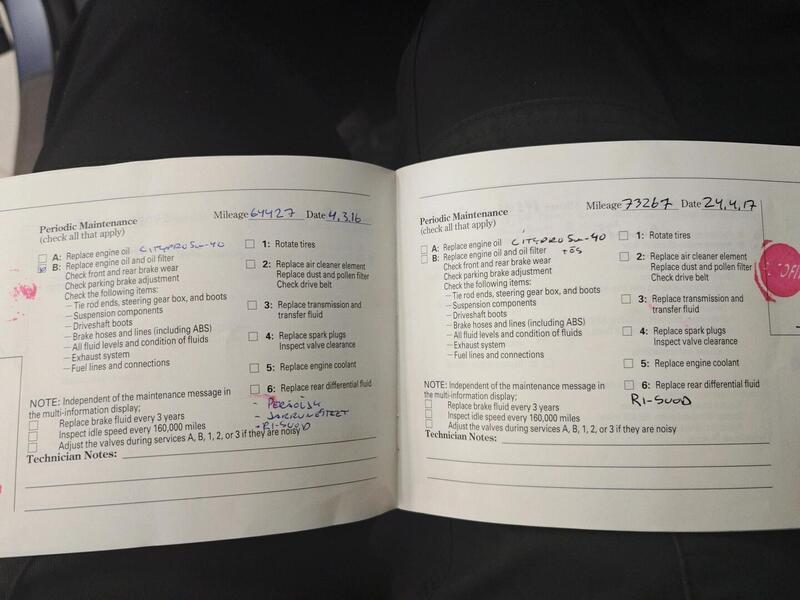 Periodic Maintenance
(check all that apply)
Mileage 64427 Date 4.3.16
A: Replace engine oil CITYPRO 5w-40
B: Replace engine oil and oil filter
Check front and rear brake wear
Check parking brake adjustment
Check the following items:
– Tie rod ends, steering gear box, and boots
– Suspension components
– Driveshaft boots
– Brake hoses and lines (including ABS)
– All fluid levels and condition of fluids
– Exhaust system
– Fuel lines and connections
1: Rotate tires
2: Replace air cleaner element
Replace dust and pollen filter
Check drive belt
3: Replace transmission and
transfer fluid
4: Replace spark plugs
Inspect valve clearance
5: Replace engine coolant
6: Replace rear differential fluid
- PERÄÖLJY
- JARRUNESTEET
- RI-SUOD
NOTE: Independent of the maintenance message in
the multi-information display;
Replace brake fluid every 3 years
Inspect idle speed every 160,000 miles
Adjust the valves during services A, B, 1, 2, or 3 if they are noisy
Technician Notes:
Periodic Maintenance
(check all that apply)
Mileage 73267 Date 24.4.17
A: Replace engine oil CITYPRO 5w-40
B: Replace engine oil and oil filter
Check front and rear brake wear
Check parking brake adjustment
Check the following items:
– Tie rod ends, steering gear box, and boots
– Suspension components
– Driveshaft boots
– Brake hoses and lines (including ABS)
– All fluid levels and condition of fluids
– Exhaust system
– Fuel lines and connections
1: Rotate tires
2: Replace air cleaner element
Replace dust and pollen filter
Check drive belt
3: Replace transmission and
transfer fluid
4: Replace spark plugs
Inspect valve clearance
5: Replace engine coolant
6: Replace rear differential fluid
RI-SUOD
NOTE: Independent of the maintenance message in
the multi-information display;
Replace brake fluid every 3 years
Inspect idle speed every 160,000 miles
Adjust the valves during services A, B, 1, 2, or 3 if they are noisy
Technician Notes: